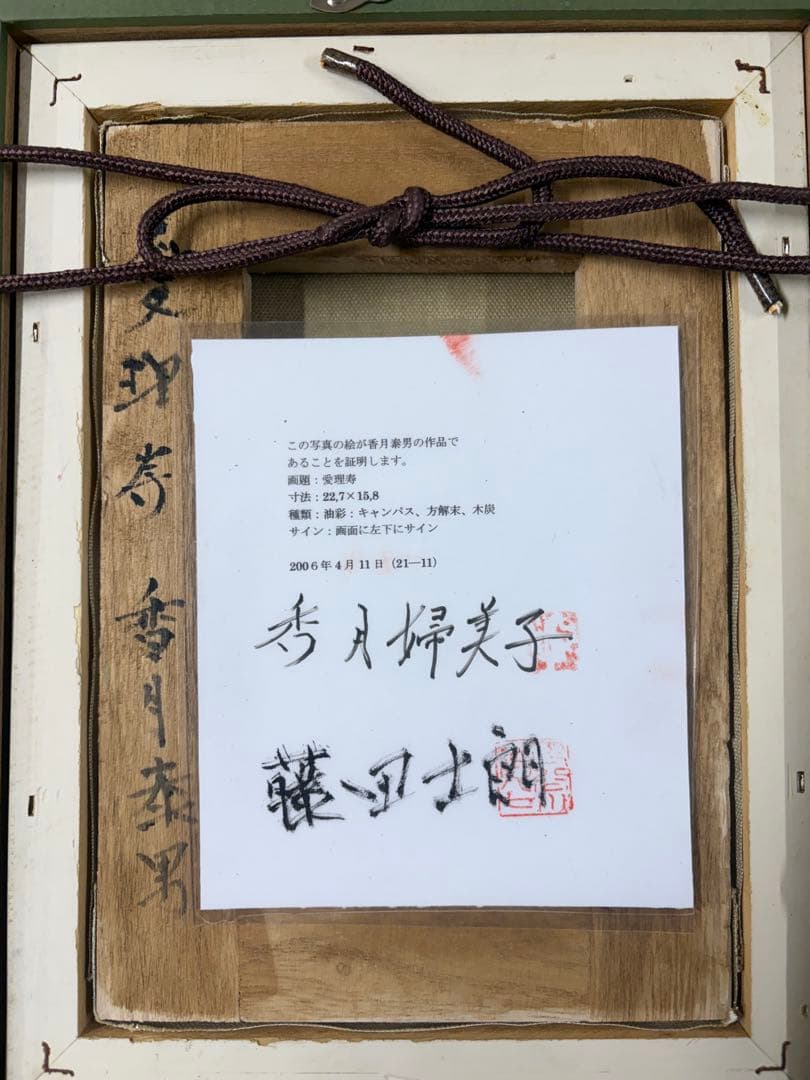 愛理寿 香月泰男
この写真の絵が香月泰男の作品で
あることを証明します。
画題：愛理寿
寸法：22,7×15,8
種類：油彩：キャンパス、方解末、木炭
サイン：画面に左下にサイン
2006年4月11日（21―11）
香月婦美子
藤田士朗